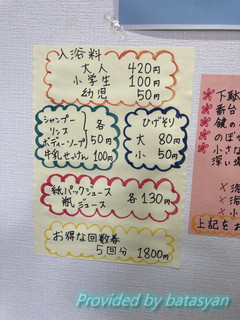 入浴料
大人 420円
小学生 100円
幼児 50円
シャンプー
リンス
ボディーソープ
各
50円
牛乳せっけん 100円
ひげそり
大 80円
小 50円
紙パックジュース
瓶ジュース
各 130円
お得な回数券
5回分 1800円
下駄
番台
鏡の
のぼせ
小さな
深い場
上記をお
Provided by batasyan